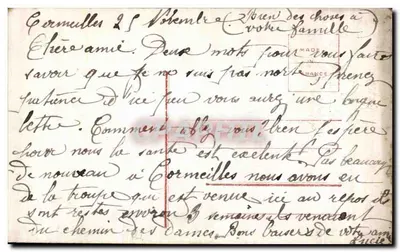 Cormeilles 25 Novembre (Bien des choses à
votre famille
Chère amie. Deux mots pour vous faire
savoir que je ne suis pas morte prenez
patience d'ici peu vous aurez une longue
lettre. Comment allez vous? bien j'espère
pour nous la santé est excelente Pas beaucoup
de nouveau à Cormeilles nous avons eu
de la troupe qui est venue ici au repos ils
sont restés environ 3 semaine ils venaient
du chemin des dames. Bons baisers de votre amie
Lucie